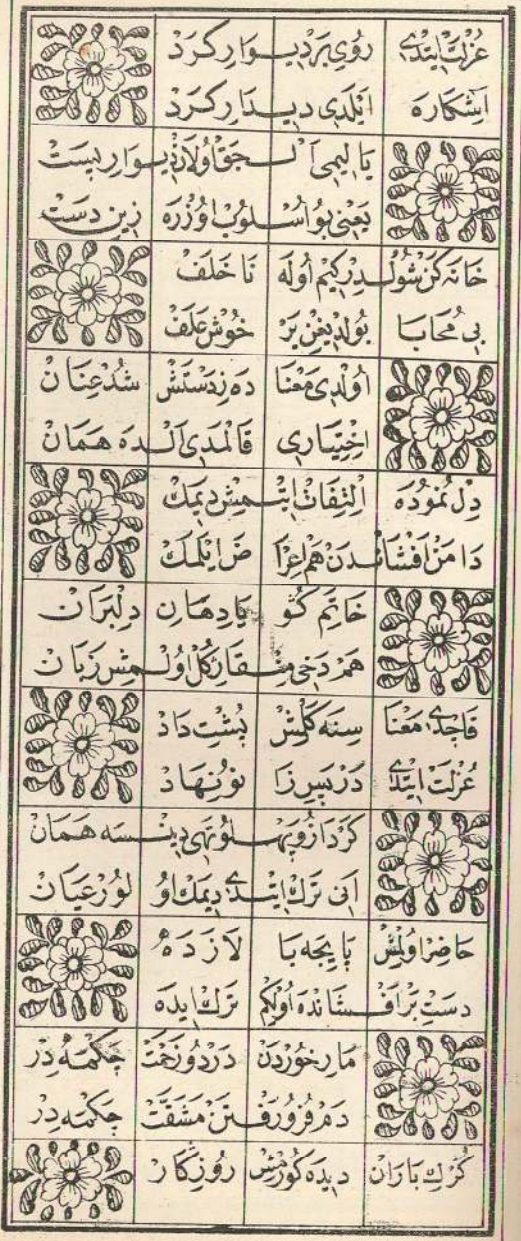 عُزْلَتْ اِيتْدِى رُوىِ بَرْدِيوَارِ كَرَدْ
اَشِكَارَه اَيْلَدِى دِيدَارِ كَرَدْ
يَا اَلْچَقْ اُولَانْ دِيوَارِ بَسْتْ
يَعْنِى بُو اُسْلُوبْ اُوزْرَه زِينِ دَسْتْ
خَانَه كَنْ شُولْدِرْ كِيمْ اُولَه نَا خَلَفْ
بِى مُحَابَا بُولْدِيغِنْ يَرْ خُوشْ عَلَفْ
اُولْدِى مَعْنَا دَه زِدَسْتَشْ شُدْ عِنَانْ
اِخْتِيَارِى قَالْمَدِى اَلْدَه هَمَانْ
دِلْ نُمُودَه اِلْتِفَاتْ اِيتْمِشْ دِيمَكْ
دَامَنْ اَفْشَانْدَنْ هَمْ اِعْرَاضْ اِيْلَمَكْ
خَاتَمِ كُو يَا دِهَانِ دِلْبَرَانْ
هَمْ دَخِى مِنْقَارِ كُلْ اُولْمِشْ زَبَانْ
قَاچْدِى مَعْنَا سِنَه كَلْمِشْ پُشْتِ دَادْ
عُزْلَتْ اِيتْدِى دَرْ پَسِ زَانُو نِهَادْ
كَرْدْ اَزُو پَهْلُو تَهِى دِينْسَه هَمَانْ
اَنِى تَرْكْ اِيتْدِى دِيمَكْ اُولُورْ عَيَانْ
حَاضِرْ اُولْمِشْ پَايِچَه بَالَا زَدَه
دَسْتِ بَرْ اَفْشَانْدَه اُولْكِمْ تَرْكْ اِيدَه
مَارِ خُورْدَنْ دَرْدُ و زَحْمَتْ چَكْمَه دِرْ
دَمْ فُرُو رَفْتَنْ مَشَقَّتْ چَكْمَه دِرْ
كُرْكِ بَارَانْ دِيدَه كُورْمِشْ رُوزِكَارْ